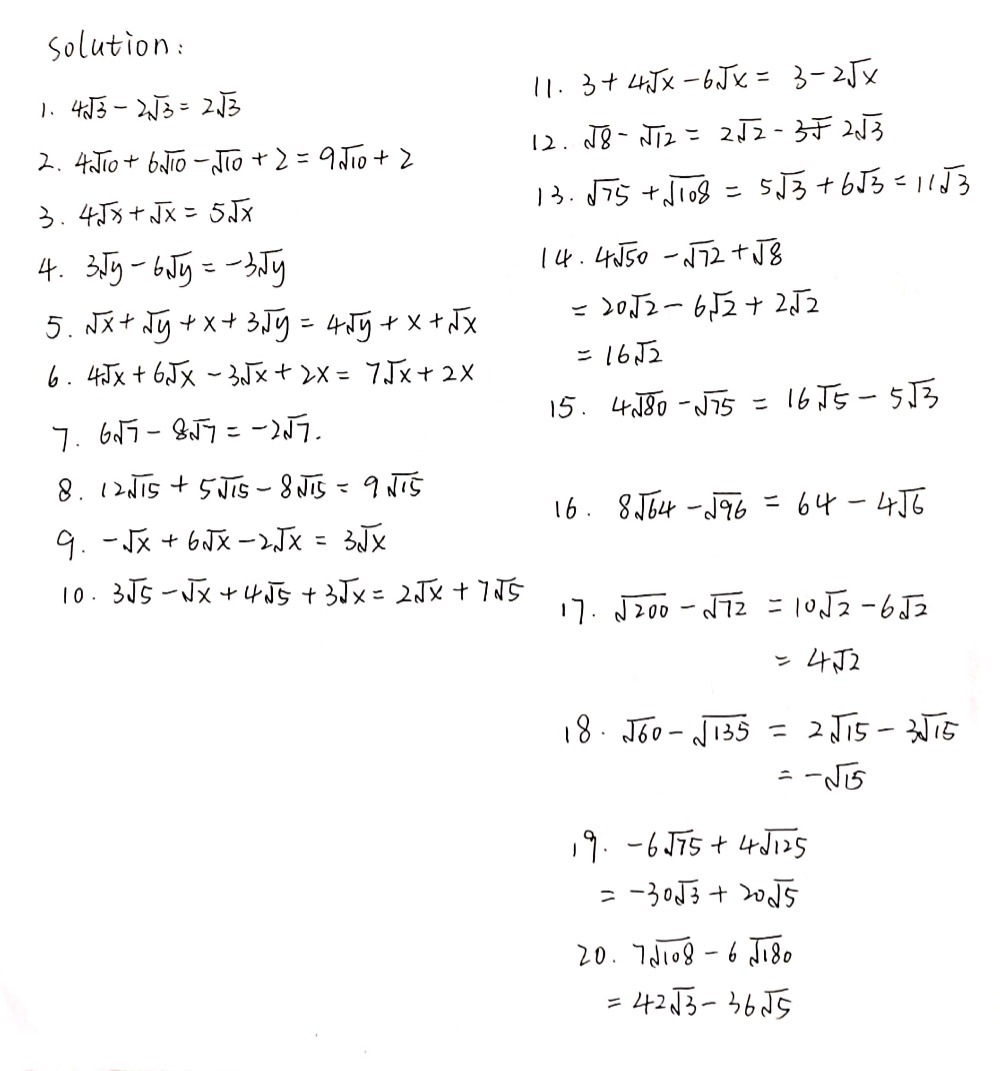 Solution:
1. 4√3 - 2√3 = 2√3
2. 4√10 + 6√10 - √10 + 2 = 9√10 + 2
3. 4√x + √x = 5√x
4. 3√y - 6√y = -3√y
5. √x + √y + x + 3√y = 4√y + x + √x
6. 4√x + 6√x - 3√x + 2x = 7√x + 2x
7. 6√7 - 8√7 = -2√7.
8. 12√15 + 5√15 - 8√15 = 9√15
9. -√x + 6√x - 2√x = 3√x
10. 3√5 - √x + 4√5 + 3√x = 2√x + 7√5
11. 3 + 4√x - 6√x = 3 - 2√x
12. √8 - √12 = 2√2 - 2√3
13. √75 + √108 = 5√3 + 6√3 = 11√3
14. 4√50 - √72 + √8
= 20√2 - 6√2 + 2√2
= 16√2
15. 4√80 - √75 = 16√5 - 5√3
16. 8√64 - √96 = 64 - 4√6
17. √200 - √72 = 10√2 - 6√2
= 4√2
18. √60 - √135 = 2√15 - 3√15
= -√15
19. -6√75 + 4√125
= -30√3 + 20√5
20. 7√108 - 6√180
= 42√3 - 36√5